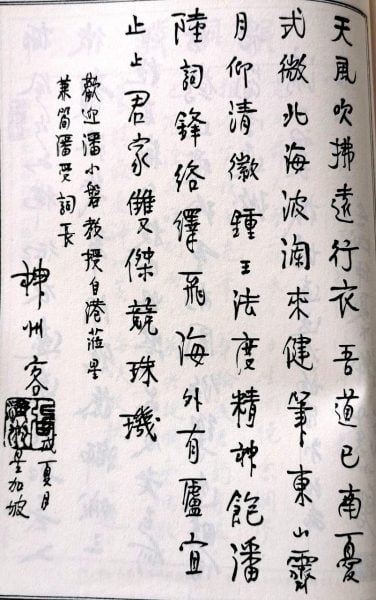 天風吹拂遠行衣吾道已南憂
式微北海波瀾來健筆東山霽
月仰清徽鍾王法度精神飽潘
陸詞鋒絡繹飛海外有廬宜
止止君家雙傑競珠璣
歡迎潘小磐教授自港蒞星
兼簡潘受詞長
神州客
戌夏月
星加坡